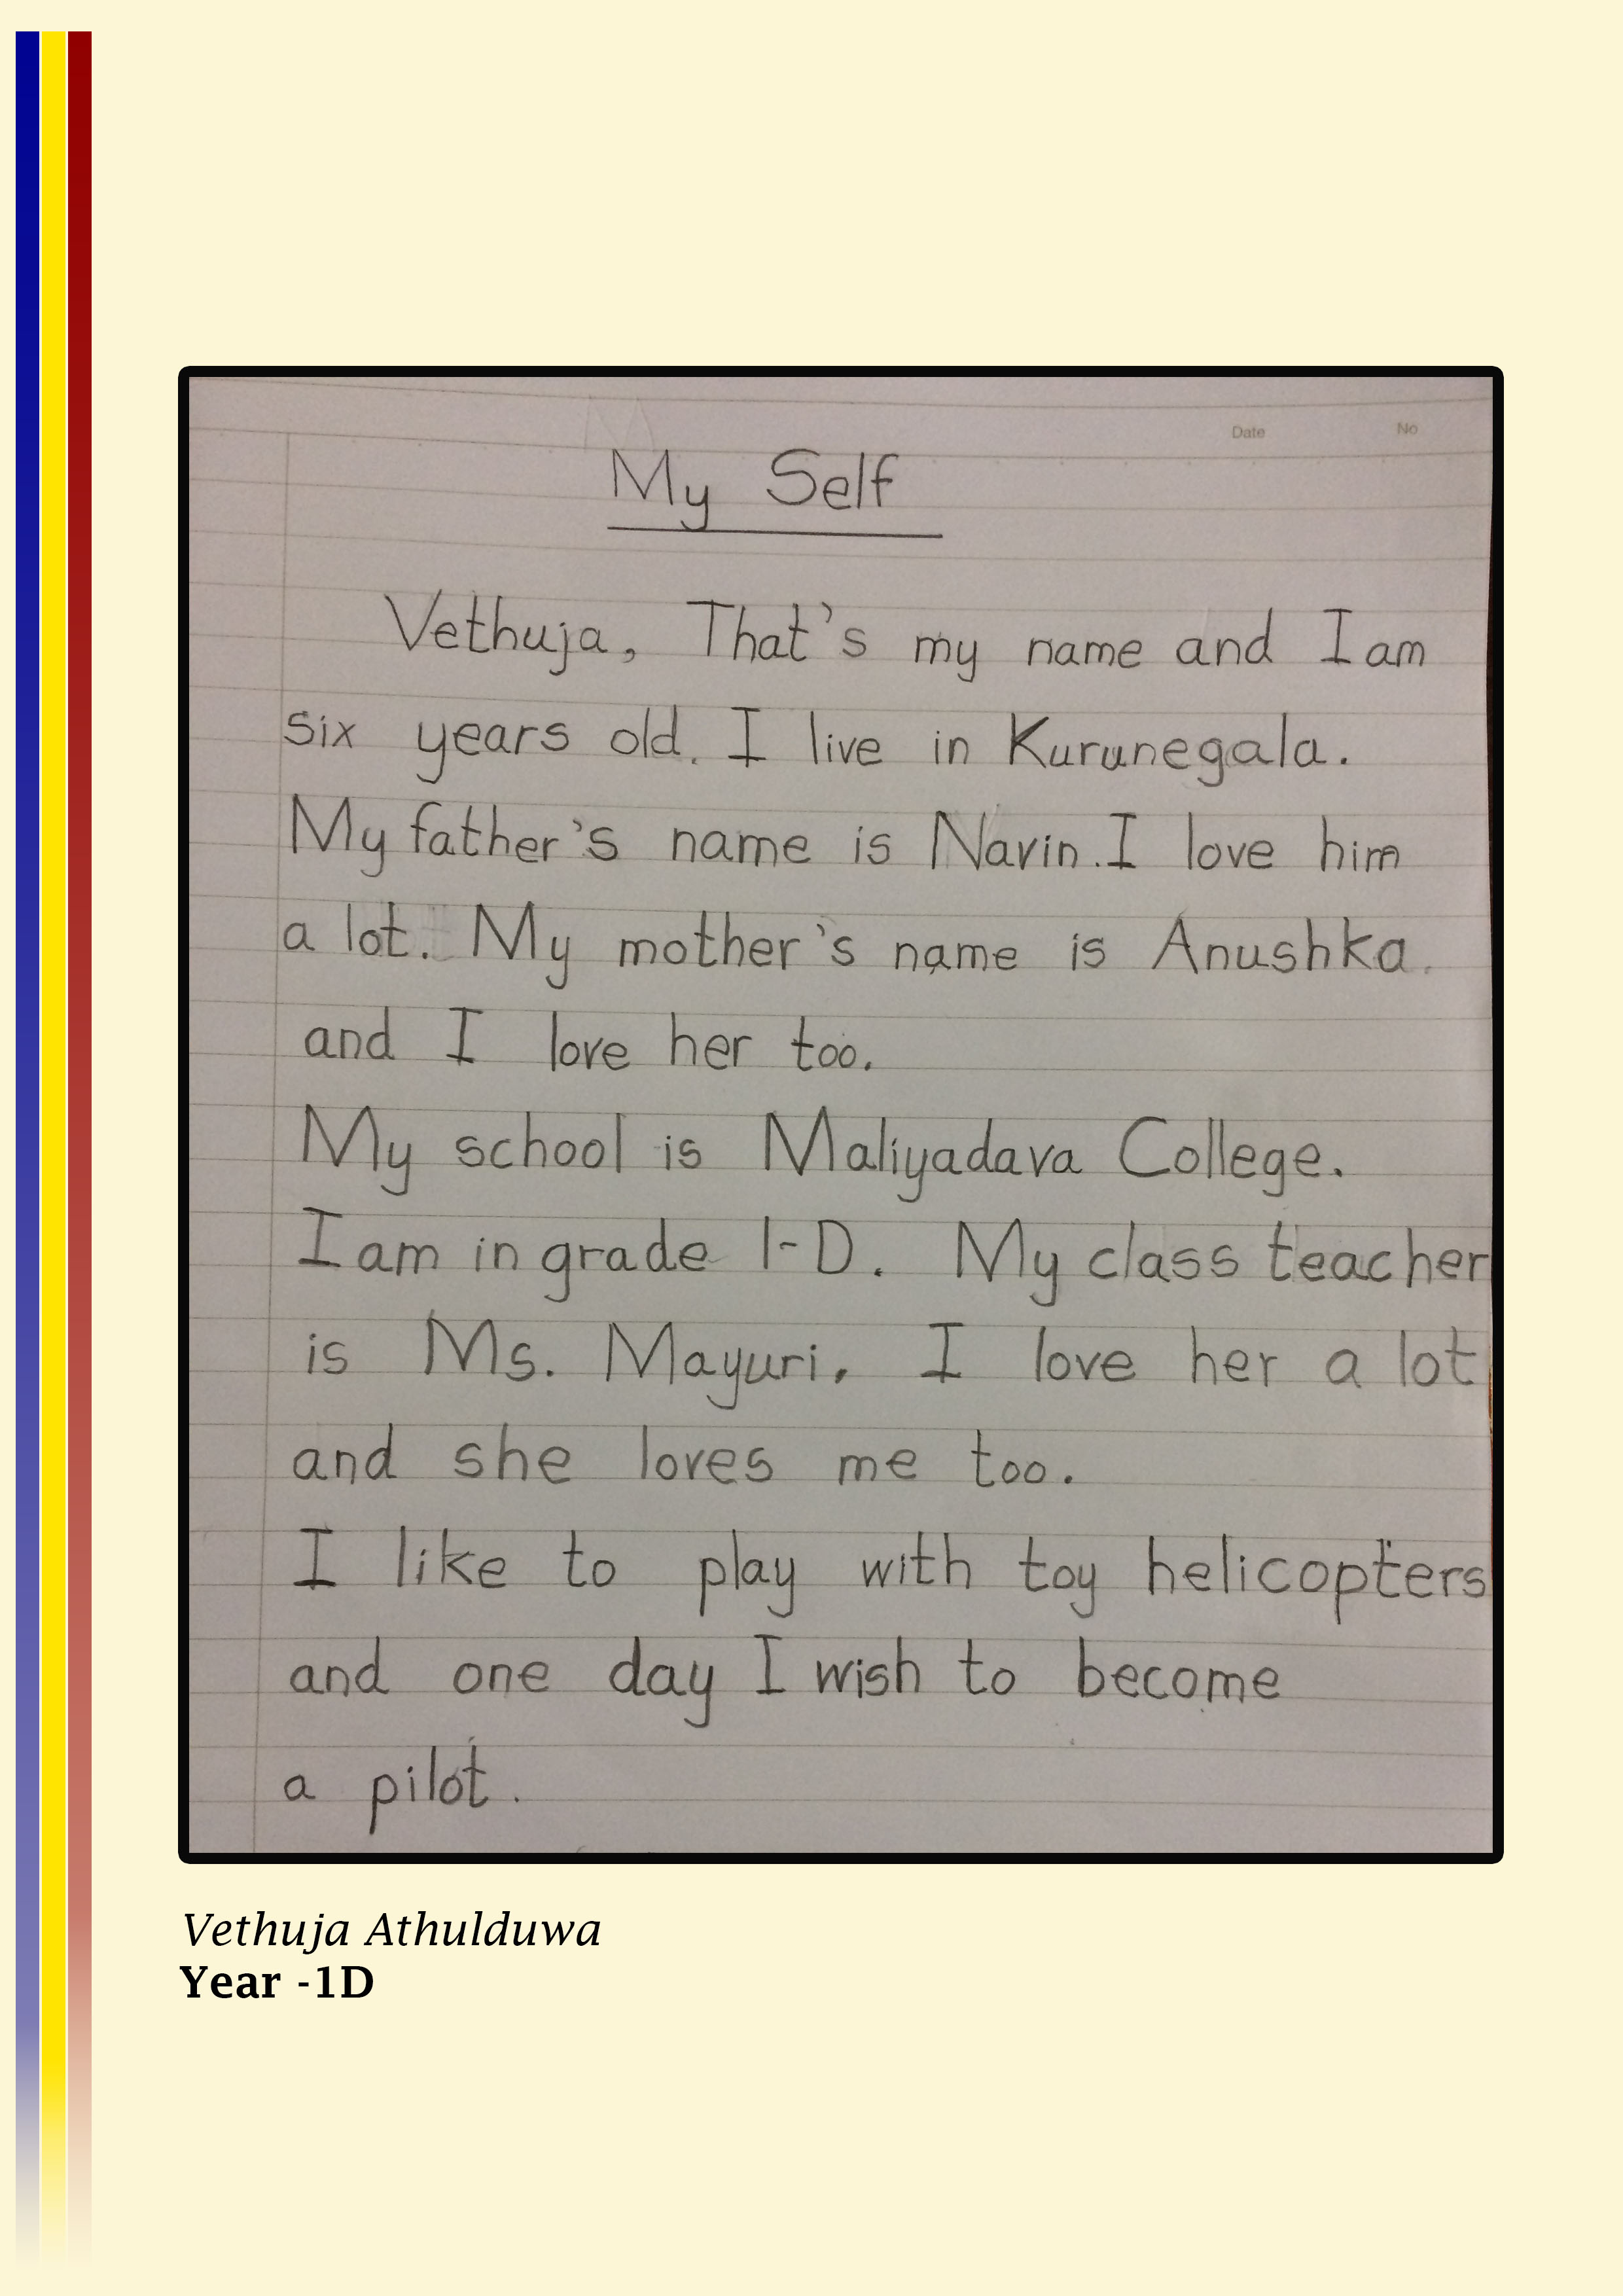 Date No
My Self
Vethuja, That's my name and I am
six years old. I live in Kurunegala.
My father's name is Navin. I love him
a lot. My mother's name is Anushka.
and I love her too.
My school is Maliyadava College.
I am in grade 1-D. My class teacher
is Ms. Mayuri. I love her a lot
and she loves me too.
I like to play with toy helicopters
and one day I wish to become
a pilot.
Vethuja Athulduwa
Year -1D